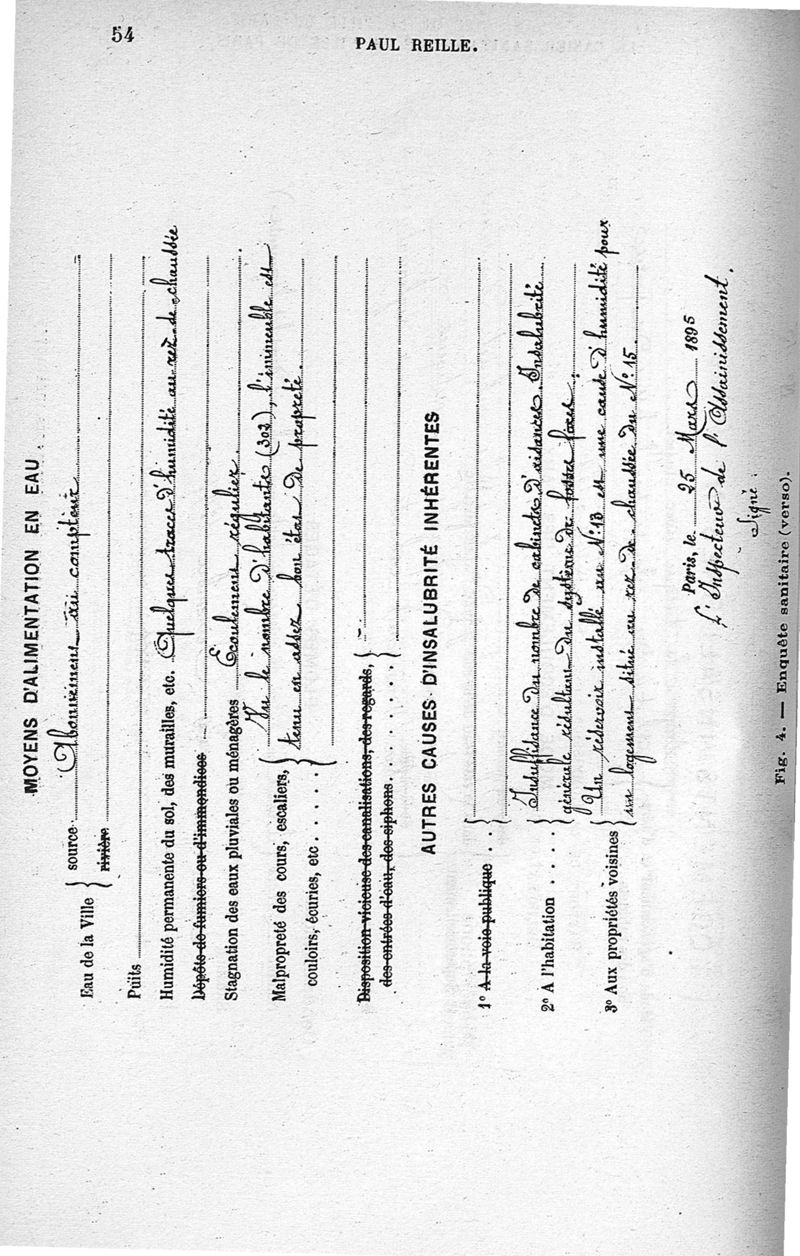 54
PAUL REILLE.
MOYENS D'ALIMENTATION EN EAU
Eau de la Ville { source Abonnement au compteur
rivière
Puits
Humidité permanente du sol, des murailles, etc. Quelques traces d'humidité au rez-de-chaussée
Dépôts de fumiers ou d'immondices
Stagnation des eaux pluviales ou ménagères Écoulement régulier.
Malpropreté des cours, escaliers, } Vu le nombre d'habitants (302), l'immeuble est
couloirs, écuries, etc . . . . . } tenu en assez bon état de propreté.
Disposition vicieuse des canalisations, des regards, }
des entrées d'eau, des siphons . . . . . . . . }
AUTRES CAUSES D'INSALUBRITÉ INHÉRENTES
1° A la voie publique . . }
2° A l'habitation . . . . . } Insuffisance du nombre de cabinets d'aisances. Insalubrité
générale résultant du système de fosses fixes.
3° Aux propriétés voisines } Un réservoir installé au N° 13 est une cause d'humidité pour
un logement situé au rez-de-chaussée du N° 15.
Paris, le 25 Mars 1895
L'Inspecteur de l'Assainissement.
Signé :
Fig. 4. — Enquête sanitaire (verso).